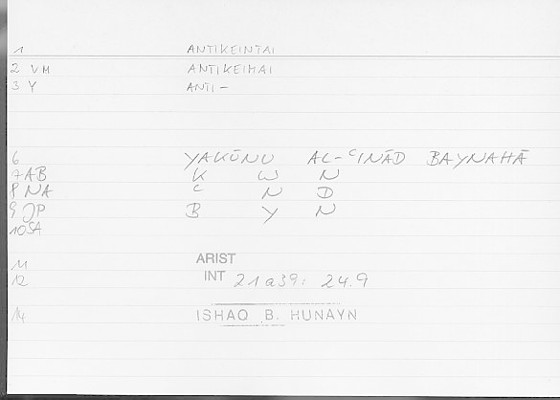 1 ANTIKEINTAI
2 VM ANTIKEIMAI
3 Y ANTI-
6 YAKŪNU AL-ʿINĀD BAYNAHĀ
7 AB K W N
8 NA ʿ N D
9 JP B Y N
10 SA
11 ARIST
12 INT 21a39; 24.9
14 ISHAQ B. HUNAYN